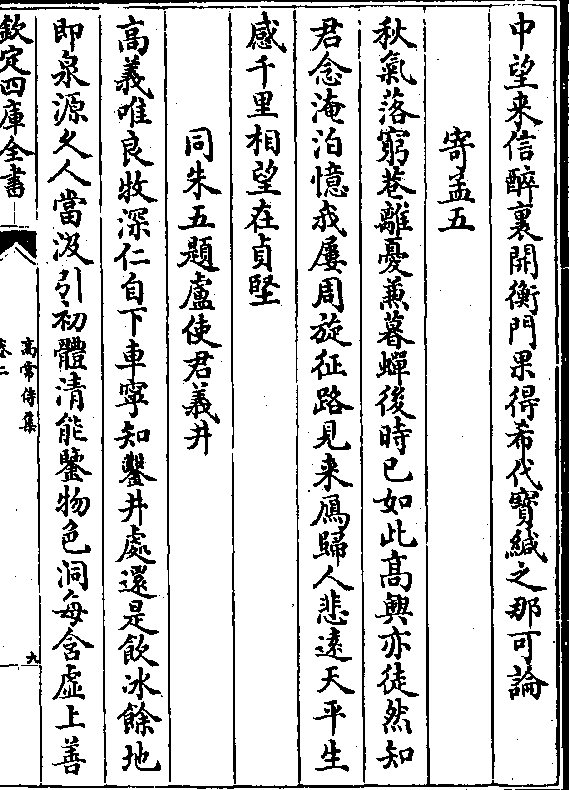 中望来信醉裏開衡門果得希代寳緘之那可論
寄孟五
秋氣落窮巷離憂兼暮蟬後時已如此髙興亦徒然知
君念淹泊憶我屢周旋征路見来鴈歸人悲逺天平生
感千里相望在貞堅
同朱五題盧使君義井
高義唯良牧深仁自下車寧知鑿井處還是飲冰餘地
即泉源久人當汲引初體清能鑒物色洞每含虚上善
欽定四庫全書
髙常侍集
卷二
九